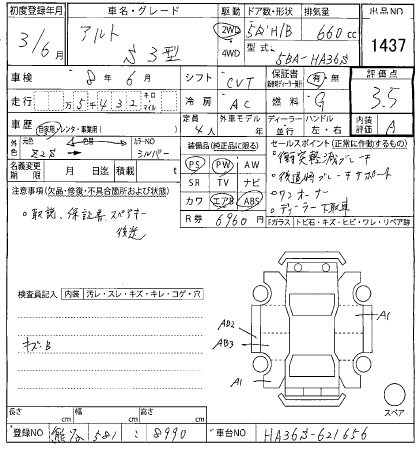 初度登録年月 車名・グレード 駆動 ドア数・形状 排気量 出品NO
3/6月 アルト S 3型 2WD 4WD 5D H/B 660cc 1437
型式 5BA-HA36S
車検 8年6月 シフト CVT 保証書 有・無 評価点 3.5
走行 万5千432 キロ マイル 冷房 AC 燃料 G
車歴 自家用・レンタ・事業用( ) 定員 4人 外車モデル 年 ディーラー・並行 ハンドル 左・右 内装評価 A
外色 元色 Z2S 色替 カラーNO シルバー
装備品(純正品に限る) セールスポイント(正常に作動するもの)
名義変更期限 月 日迄 積載 t
PS PW AW
SR TV ナビ
カワ エアB ABS
R券 6960円
。衝突軽減ブレーキ
。後退時ブレーキサポート
。ワンオーナー
。ディーラー下取車
Fガラス トビ石・キズ・ヒビ・ワレ・リペア跡
注意事項(欠品・修復・不具合箇所および状態)
。取説、保証書、スペアキー
後送
検査員記入 内装 汚レ・スレ・キズ・キレ・コゲ・穴
キズB
A1
AB2
AB3
A1
スペア
長さ cm 幅 cm 高さ cm
登録NO 581 8990 車台NO HA36S-621656